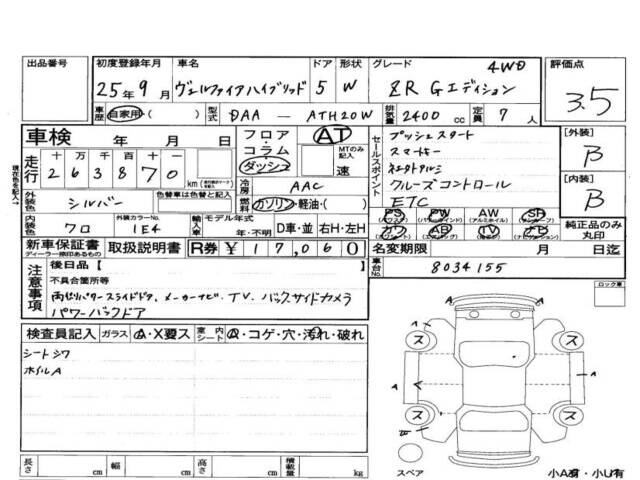 出品番号 初度登録年月 車名 ドア 形状 グレード 4WD 評価点
25年9月 ヴェルファイアハイブリッド 5 W ZR Gエディション 3.5
車歴 自家用・( ) 型式 DAA — ATH20W 排気量 2400 cc 定員 7 人
車検 年 月 日
フロア・コラム・ダッシュ AT MTのみ記入 速
走行 十 万 千 百 十 一
263870 km
セールスポイント
プッシュスタート
スマートキー
クルーズコントロール
ETC
[外装] B
[内装] B
冷房 AAC
外装色 シルバー 色替車は色替と記入
燃料 ガソリン・軽油・( )
内装色 クロ 外装カラーNo. 1E4 輸入車 モデル年式 年・不明 D車・並 右H・左H
PS PW AW SR
(パワステ) (パワーウインド) (アルミホイル) (サンルーフ)
カワ AB TV ナビ
純正品のみ丸印
新車保証書 ディーラー捺印あるもの 取扱説明書 R券 ¥17,060
名変期限 月 日迄
車台No. 8034155
現在色を記入
ロック車
注意事項
後日品 [ ]
不具合箇所等
両側パワースライドドア、メーカーナビ、TV、バックサイドカメラ
パワーバックドア
検査員記入 ガラス A・X要ス 室内シート A・コゲ・穴・汚れ・破れ
シートシワ
ホイルA
ス ス
A A
A
ス ス
スペア
小A有・小U有
長さ cm 幅 cm 高さ cm 積載量 kg